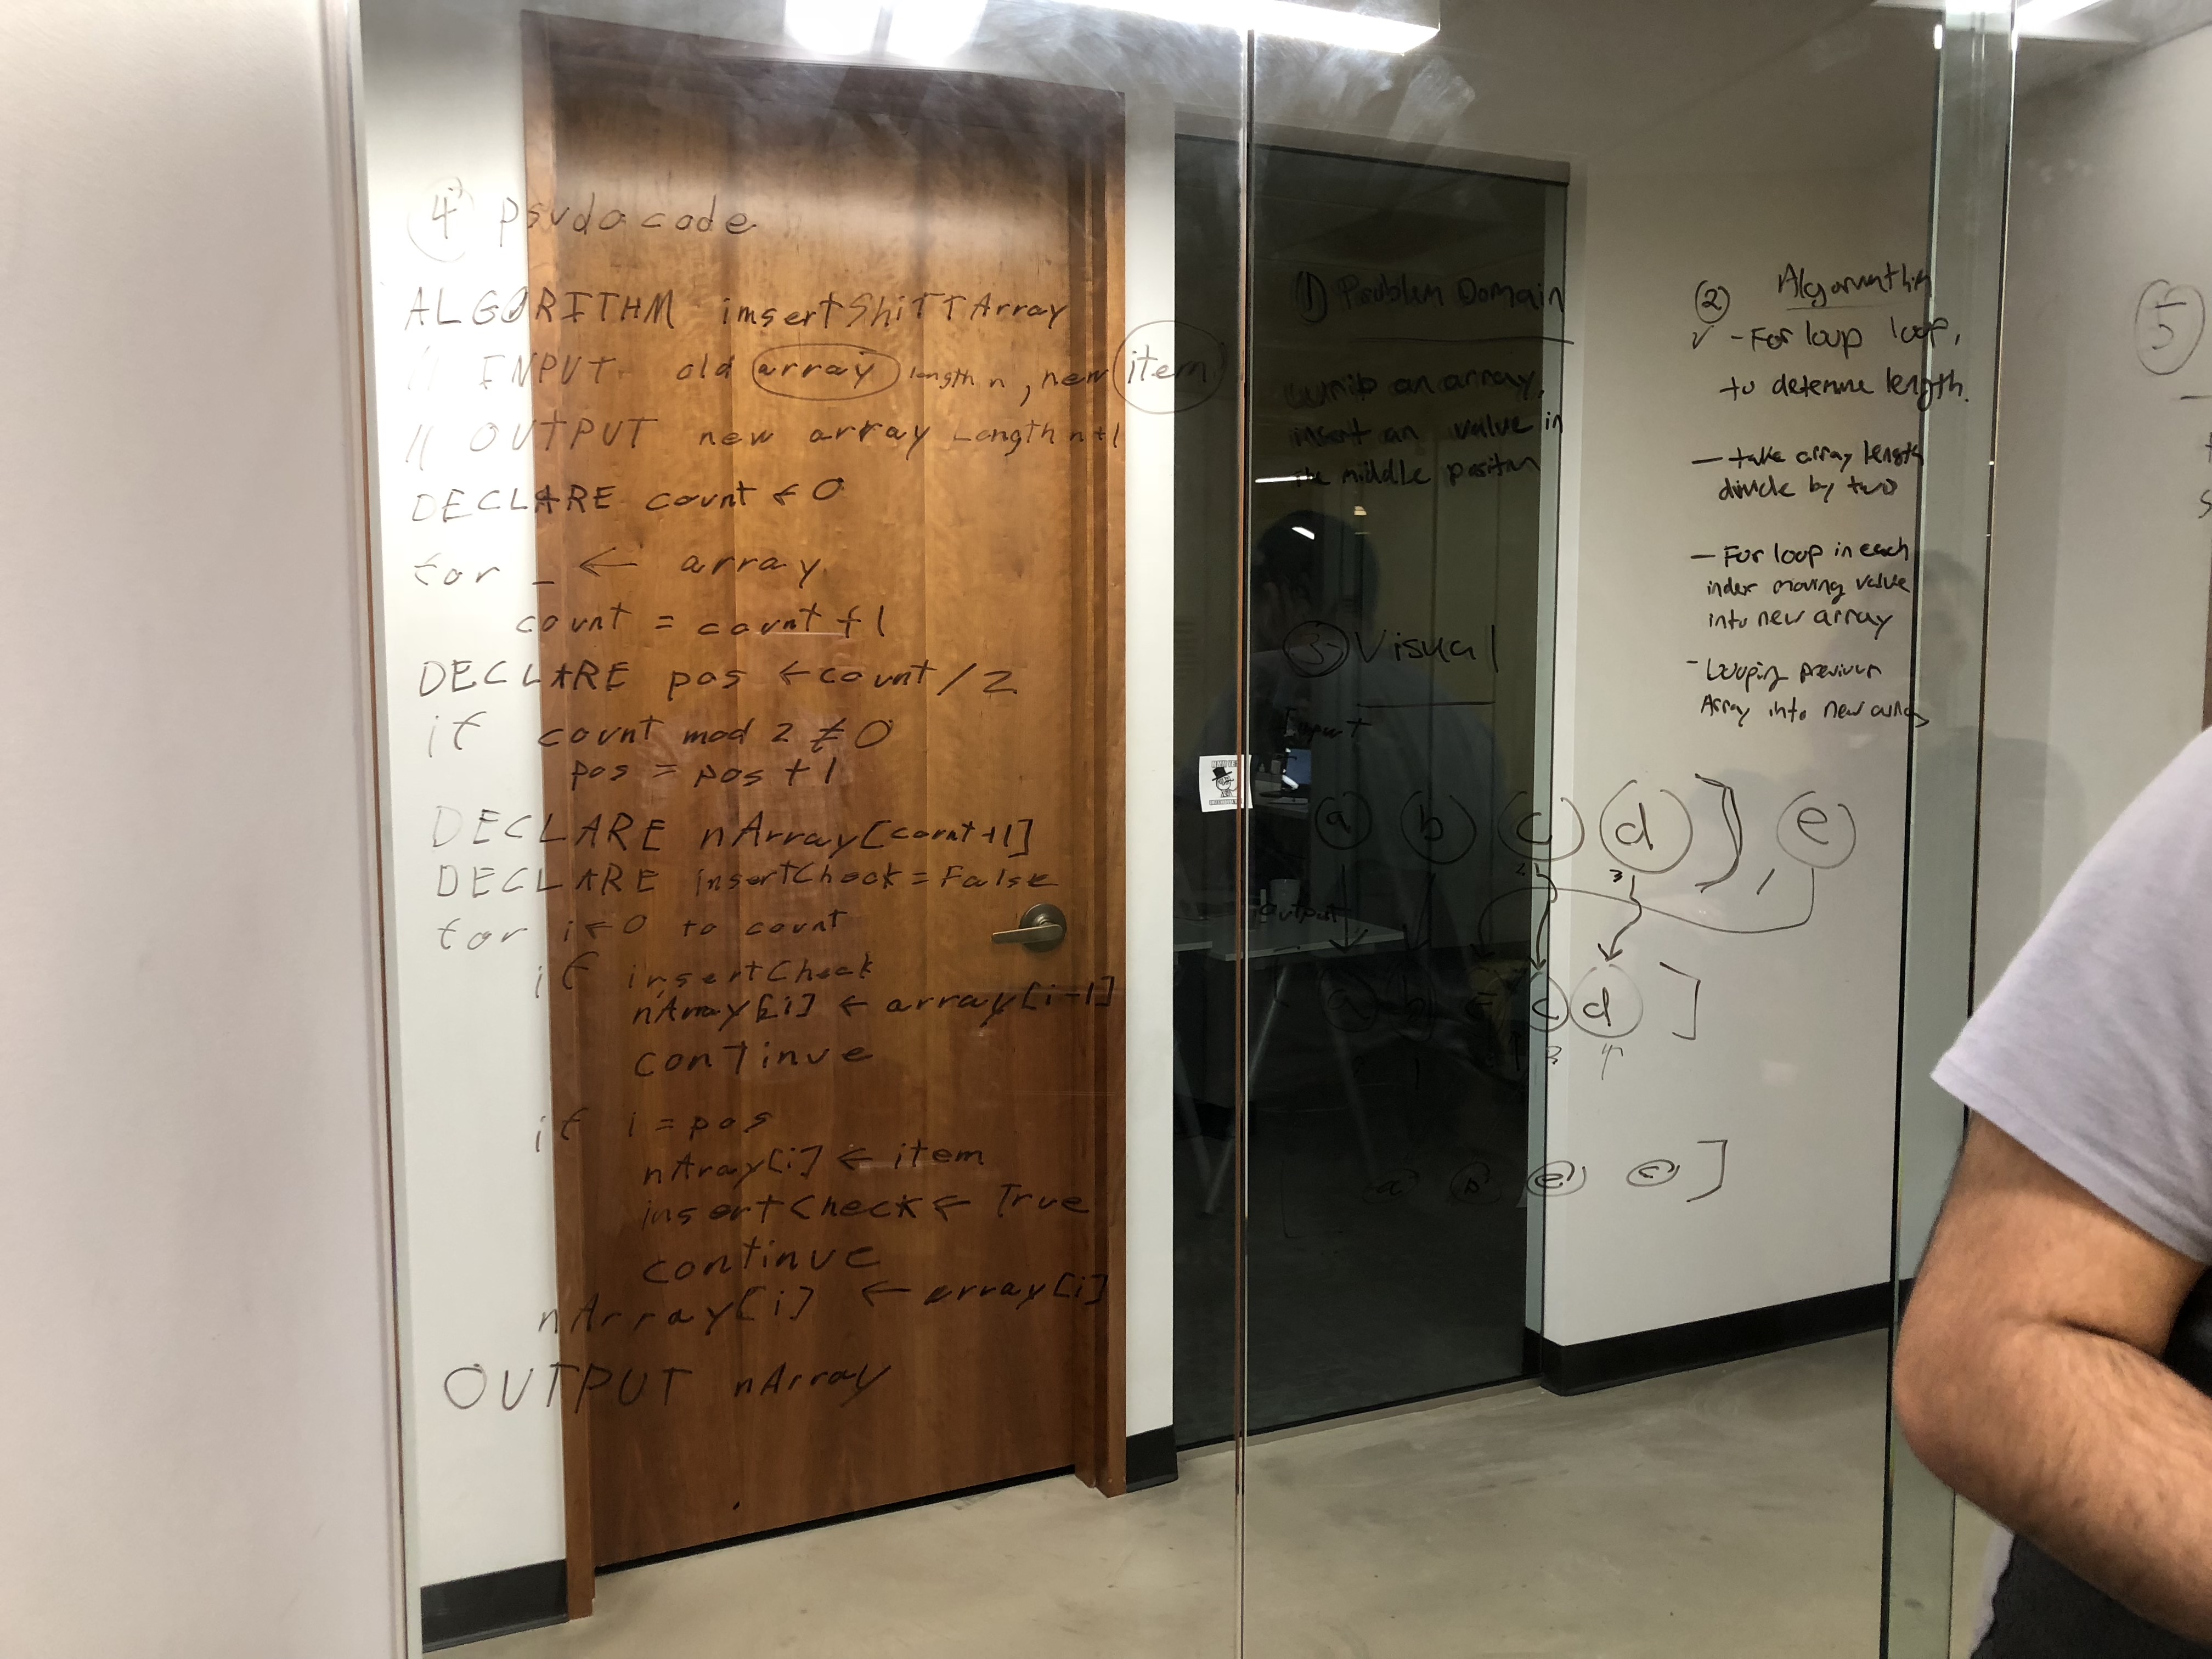 4 psudo code
ALGORITHM insertShiftArray
// INPUT old array length n, new item
// OUTPUT new array Length n+1
DECLARE count ← 0
for _ ← array
count = count + 1
DECLARE pos ← count / 2
if count mod 2 ≠ 0
pos = pos + 1
DECLARE nArray[count+1]
DECLARE insertCheck = False
for i ← 0 to count
if insertCheck
nArray[i] ← array[i-1]
continue
if i = pos
nArray[i] ← item
insertCheck ← True
continue
nArray[i] ← array[i]
OUTPUT nArray
1 Problem Domain
an array,
insert an value in
the middle position
3 Visual
Input
a b c d ] , e
2 3
output
a b e c d ]
1 3 4
[ a b e c ]
2 Algorithm
✓ - For loop loop,
to determine length.
- take array length
divide by two
- For loop in each
index moving value
into new array
- Looping previous
Array into new array
5